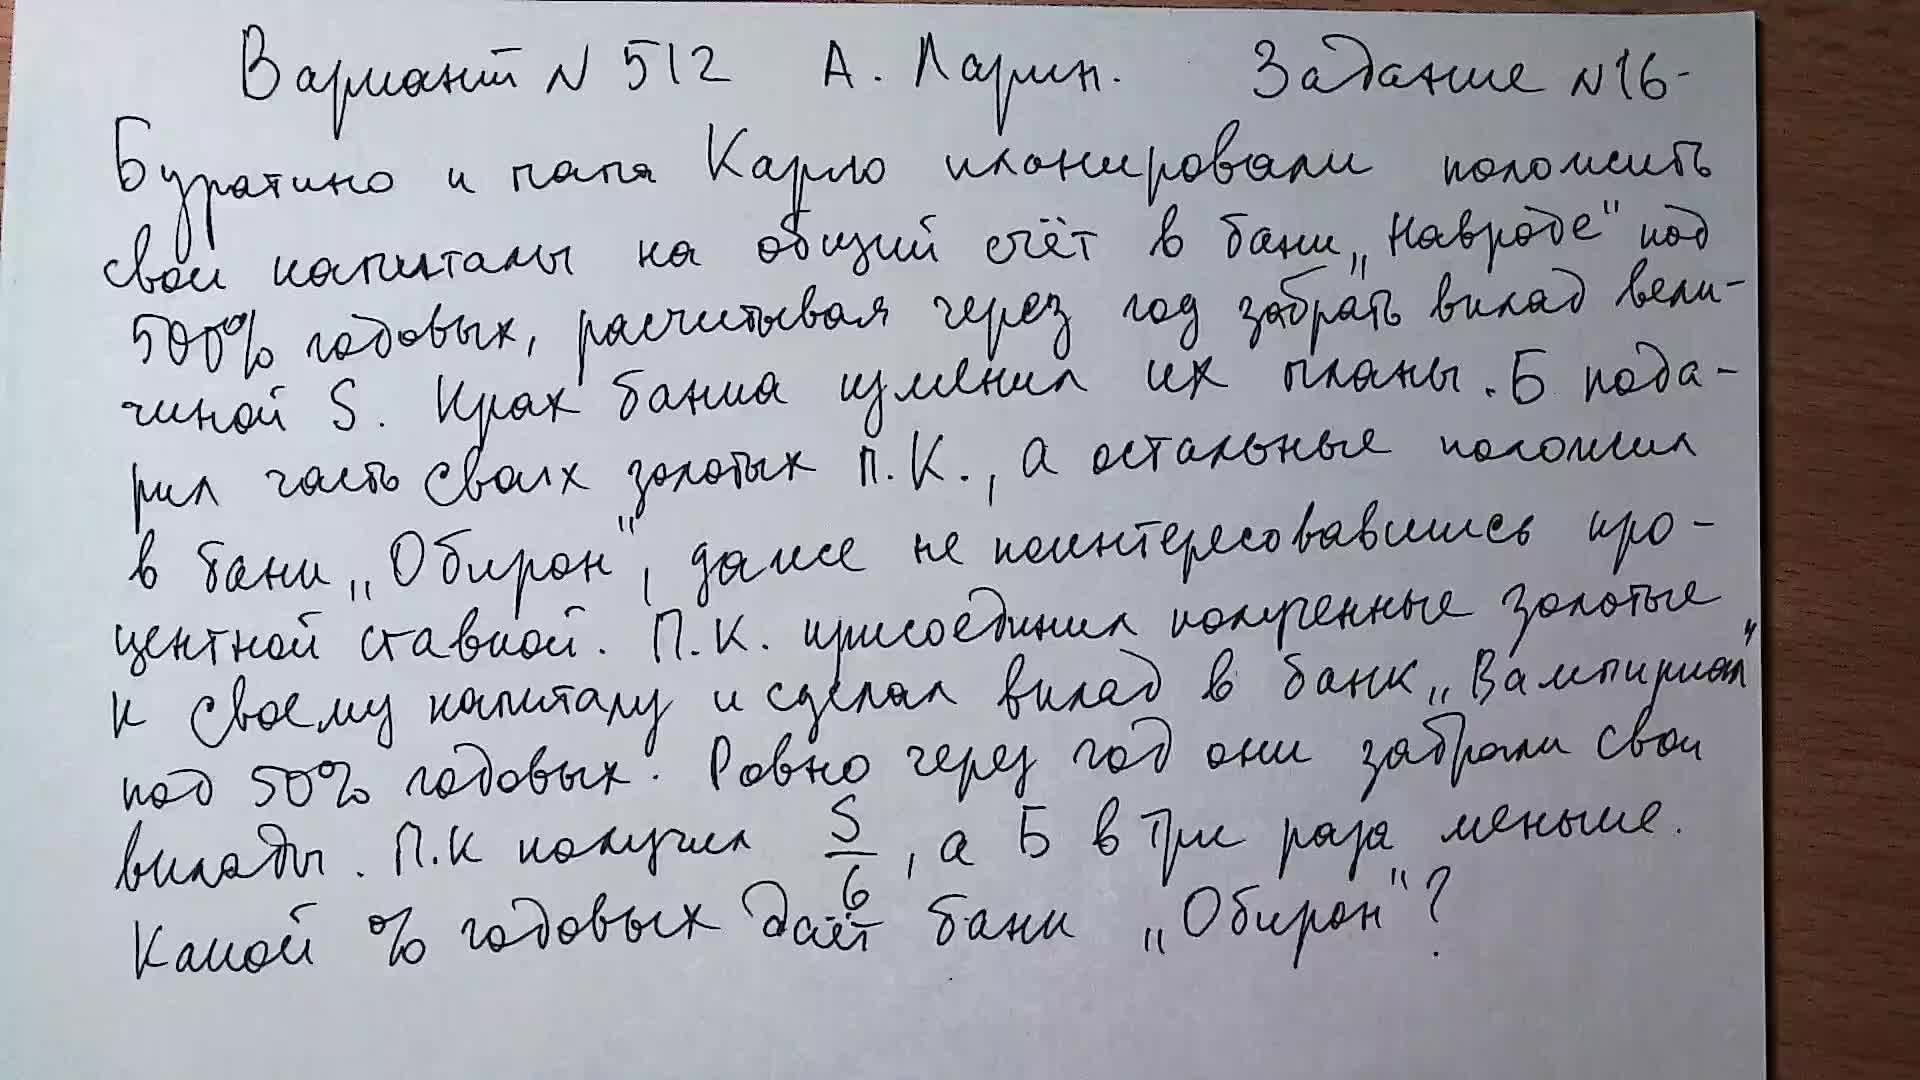 Вариант N 512 А. Ларин. Задание N16-
Буратино и папа Карло планировали положить
свои капиталы на общий счёт в банк „Навроде" под
500% годовых, расчитывая через год забрать вклад вели-
чиной S. Крах банка изменил их планы. Б пода-
рил часть своих золотых П.К., а остальные положил
в банк „Обирон", даже не поинтересовавшись про-
центной ставкой. П.К. присоединил полученные золотые
к своему капиталу и сделал вклад в банк „Вампириал"
под 50% годовых. Ровно через год они забрали свои
вклады. П.К получил S/6, а Б в три раза меньше.
Какой % годовых даёт банк „Обирон"?